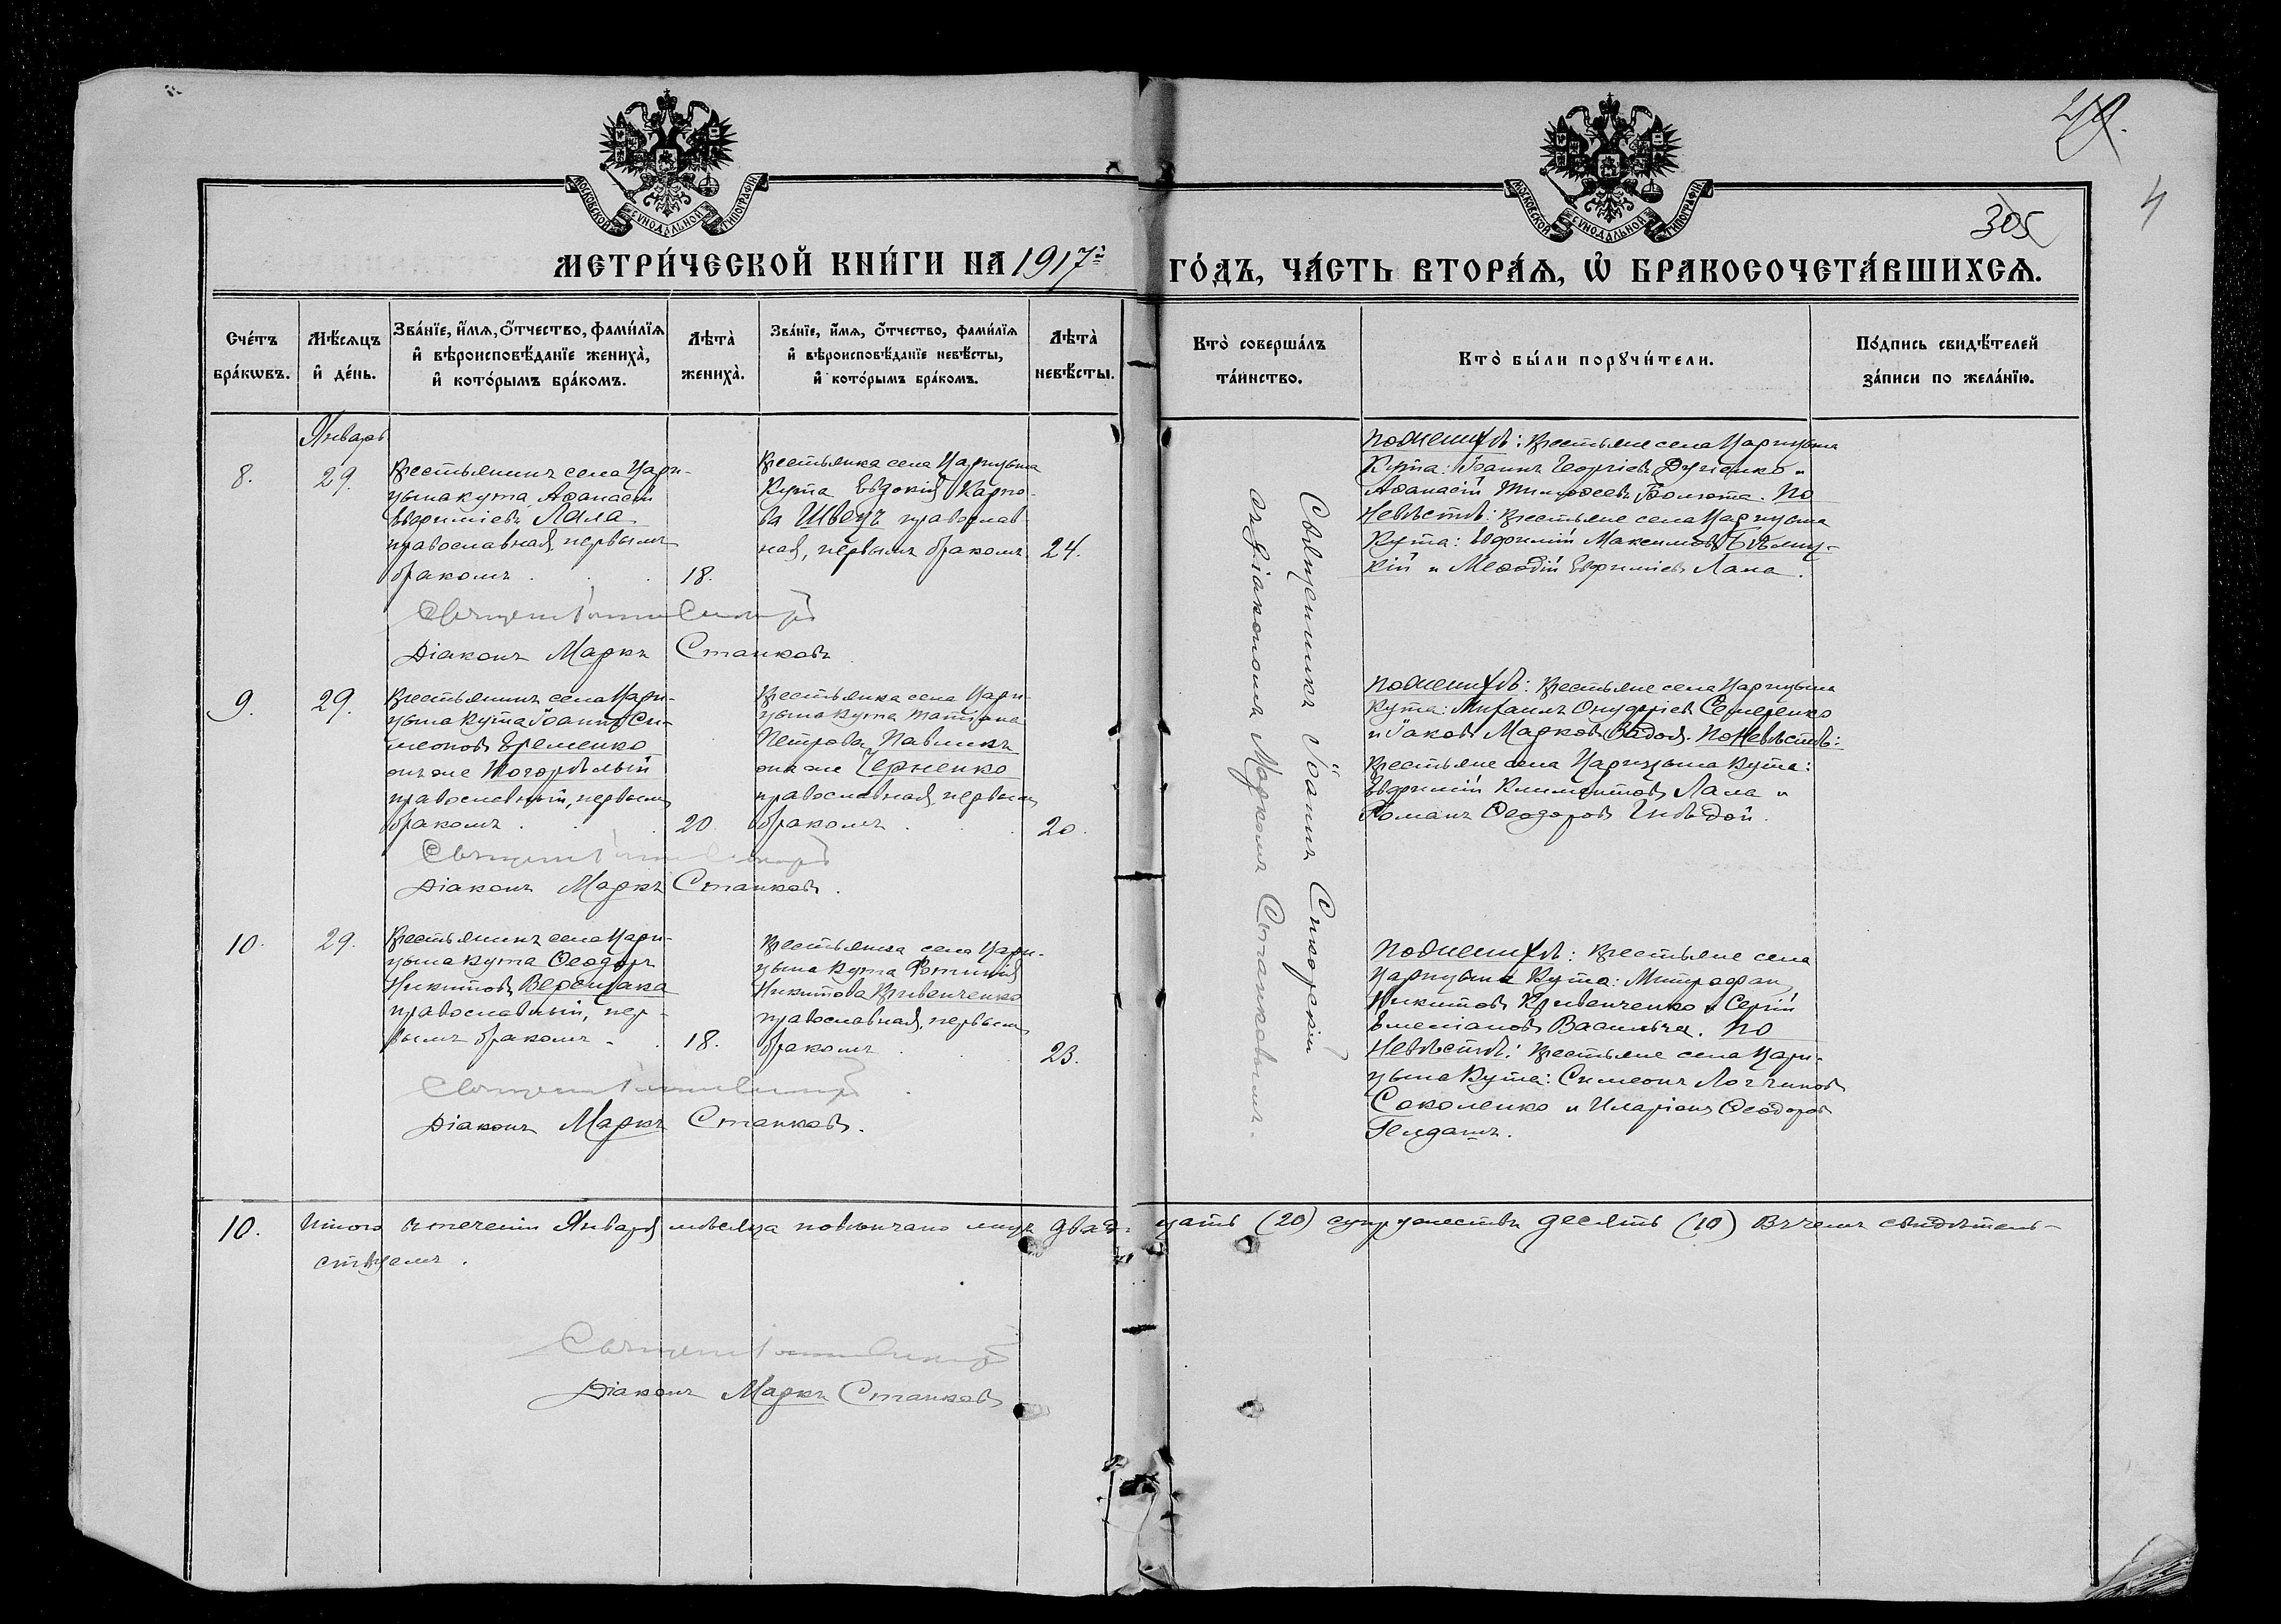 49.
4
305
МОСКОВСКОЙ СѴНОДАЛЬНОЙ ТИПОГРАФІИ
МОСКОВСКОЙ СѴНОДАЛЬНОЙ ТИПОГРАФІИ
МЕТРИ́ЧЕСКОЙ КНИ́ГИ НА 1917й ГО́ДЪ, ЧА́СТЬ ВТОРА́Ѧ, Ѽ БРАКОСОЧЕТА́ВШИХСѦ.
Сче́тъ
бра́кѡвъ.
Мѣ́сѧцъ
и҆ де́нь.
Зва́нїе, и҆́мѧ, ѻ҆́тчество, фами́лїѧ
и҆ вѣроисповѣ́данїе жениха̀,
и҆ кото́рымъ бра́комъ.
Лѣта̀
жениха̀.
Зва́нїе, и҆́мѧ, ѻ҆́тчество, фами́лїѧ
и҆ вѣроисповѣ́данїе невѣ́сты,
и҆ кото́рымъ бра́комъ.
Лѣта̀
невѣ́сты.
Кто̀ соверша́лъ
та́инство.
Кто̀ бы́ли порꙋчи́тели.
По́дпись свидѣ́телей
за́писи по жела́нїю.
Январь
8.
29.
Крестьянинъ села Цари-
цына кута Аѳанасій
Евѳиміевъ Лала
православный, первымъ
бракомъ
18.
Крестьянка села Царицына
Кута Евдокія Карпо-
ва Швецъ православ-
ная, первымъ бракомъ
24.
Священникъ Іоаннъ Сикорскій
съ діакономъ Маркомъ Станковымъ.
По женихѣ: Крестьяне села Царицына
Кута: Іоаннъ Георгіевъ Дученко и
Аѳанасій Тимоѳеевъ Болюта. По
Невѣстѣ: Крестьяне села Царицына
Кута: Евѳимій Максимовъ
кій и Меѳодій Евѳиміевъ Лала.
Діаконъ Маркъ Станковъ
9.
29.
Крестьянинъ села Цари-
цына Кута Іоаннъ Си-
меоновъ Еременко
онъ же Погорѣлый
православный, первымъ
бракомъ
20.
Крестьянка села Цари-
цына Кута Татіана
Петрова Павликъ
она же Черненко
православная, первымъ
бракомъ
20.
По женихѣ: Крестьяне села Царицына
Кута: Михаилъ Онуфріевъ Семеренко
и Іаковъ Марковъ Вадоя. По Невѣстѣ:
Крестьяне села Царицына Кута:
Евѳимій Климентовъ Лала и
Романъ Ѳеодоровъ Гнѣдой.
Діаконъ Маркъ Станковъ.
10.
29.
Крестьянинъ села Цари-
цына Кута Ѳеодоръ
Никитовъ Верещака
православный, пер-
вымъ бракомъ
18.
Крестьянка села Цари-
цына Кута Фотинія
Никитова Кривенченко
православная, первымъ
бракомъ
23.
По женихѣ: Крестьяне села
Царицына Кута: Митрофанъ
Никитовъ Кривенченко и Сергій
Емеліановъ Васильча. По
Невѣстѣ: Крестьяне села Цари-
цына Кута: Симеонъ Логгиновъ
Соколенко и Иларіонъ Ѳеодоровъ
Гендашъ.
Діаконъ Маркъ Станковъ.
10. Итого въ теченіи Января мѣсяца повѣнчано лицъ двад-цать (20) супружествъ десять (10) Въ чемъ свидѣтель-
ствуемъ.
Діаконъ Маркъ Станковъ